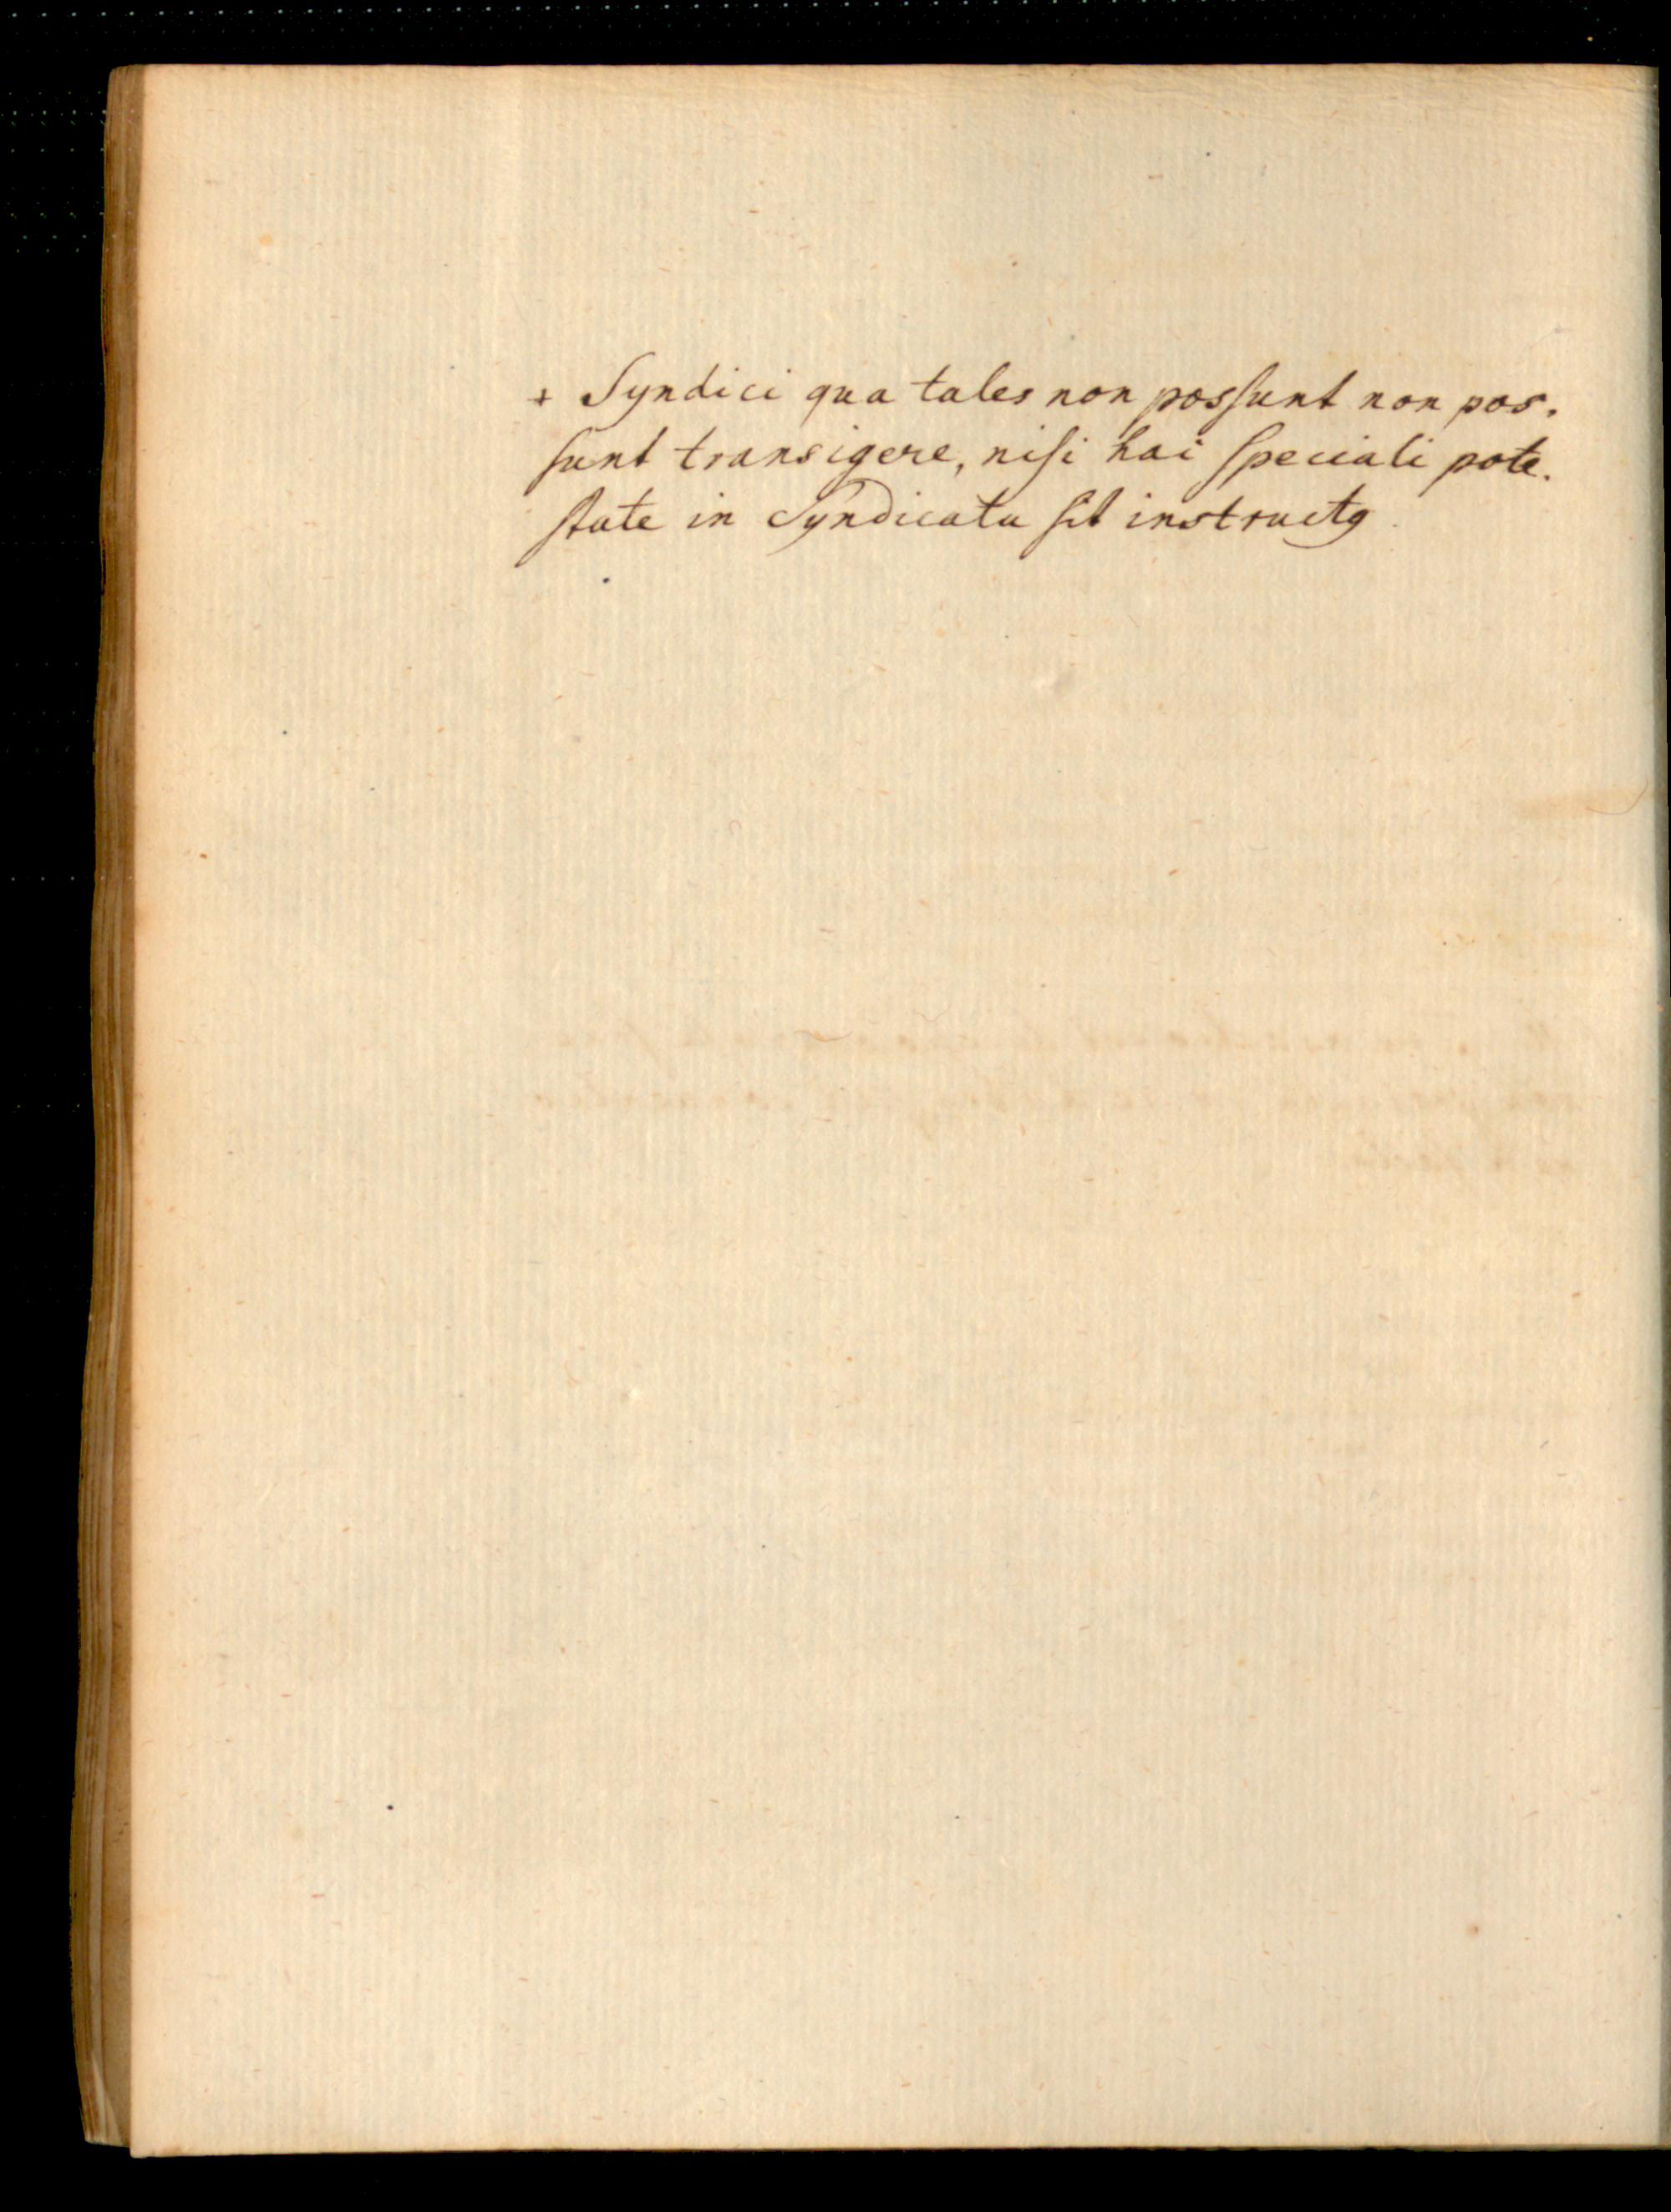 + Syndici qua tales non possunt non pos.
sunt transigere, nisi hai speciali pote.
state in Syndicatu sit instructꝯ